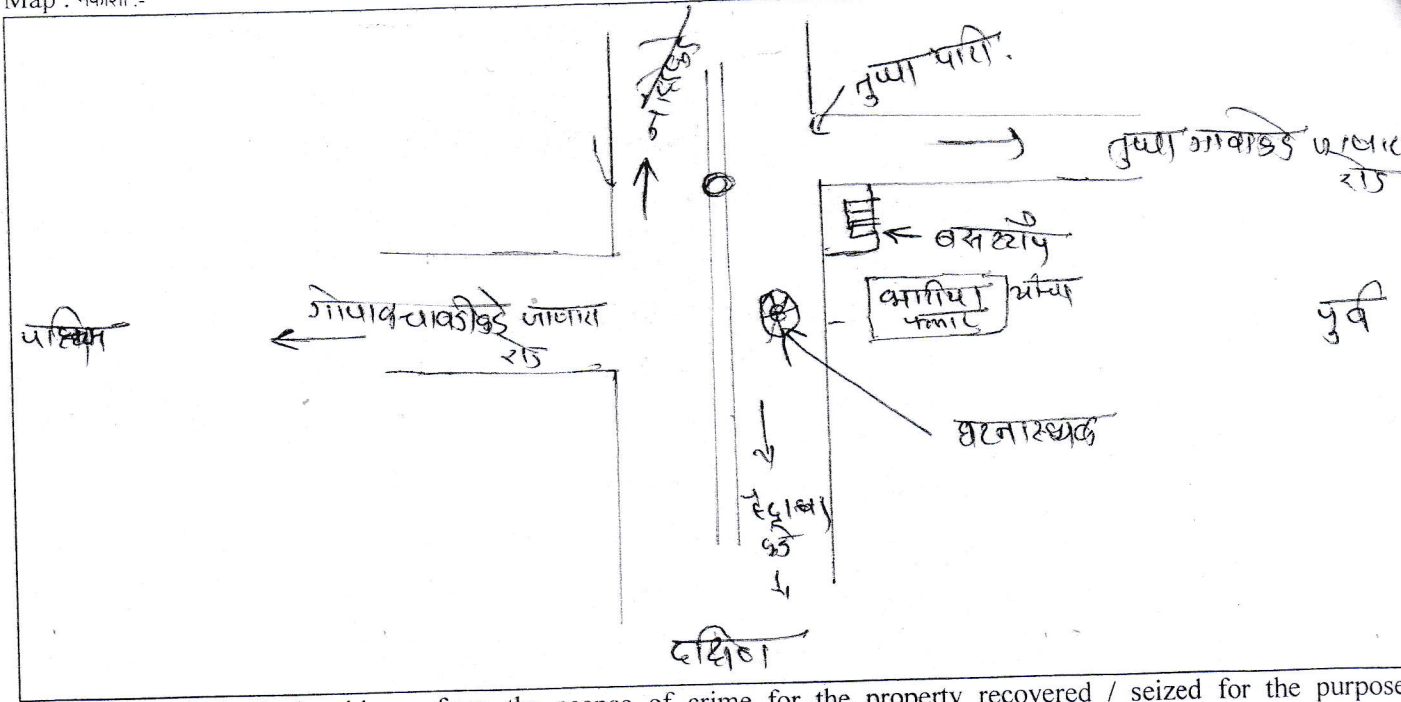 Map : नकाशा :-
तुप्पा पाटी .
तुप्पा गावाकडे
रोड
बसस्टॉप
पश्चिम
गोपाळचावडीकडे जाणारा
रोड
पुर्व
घटनास्थळ
हैद्राबा
कडे
दक्षिण
from the scence of crime for the property recovered / seized for the purpose